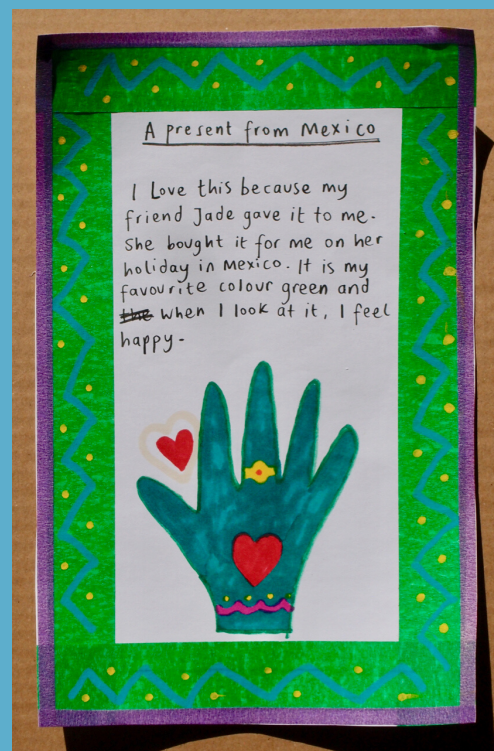 A present from Mexico
I Love this because my
friend Jade gave it to me.
She bought it for me on her
holiday in Mexico. It is my
favourite colour green and
the when I look at it, I feel
happy.